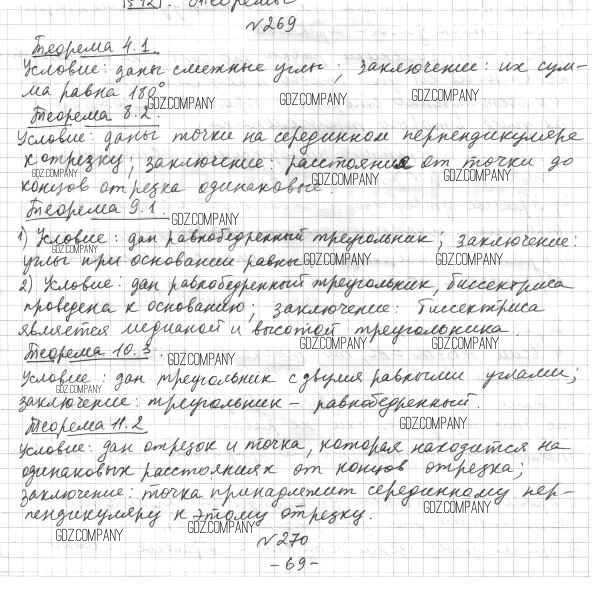 §12. Теоремы
№269
Теорема 4.1.
Условие: даны смежные углы; заключение: их сум-
ма равна 180°
GDZ.COMPANY GDZ.COMPANY GDZ.COMPANY
Теорема 8.2.
Условие: даны точки на серединном перпендикуляре
к отрезку; заключение: расстояние от точки до
GDZ.COMPANY GDZ.COMPANY GDZ.COMPANY
концов отрезка одинаковые.
Теорема 9.1.
GDZ.COMPANY
1) Условие: дан равнобедренный треугольник; заключение:
GDZ.COMPANY
углы при основании равны.
GDZ.COMPANY GDZ.COMPANY
2) Условие: дан равнобедренный треугольник, биссектриса
проведена к основанию; заключение: биссектриса
является медианой и высотой треугольника.
GDZ.COMPANY GDZ.COMPANY
Теорема 10.3.
GDZ.COMPANY
Условие: дан треугольник с двумя равными углами;
GDZ.COMPANY
заключение: треугольник - равнобедренный.
Теорема 11.2
GDZ.COMPANY
Условие: дан отрезок и точка, которая находится на
одинаковых расстояниях от концов отрезка;
заключение: точка принадлежит серединному пер-
GDZ.COMPANY
пендикуляру к этому отрезку.
GDZ.COMPANY GDZ.COMPANY
№270
-69-